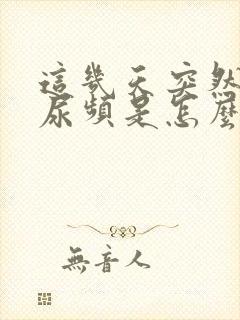 這幾天突然
尿頻是怎麼
無音人